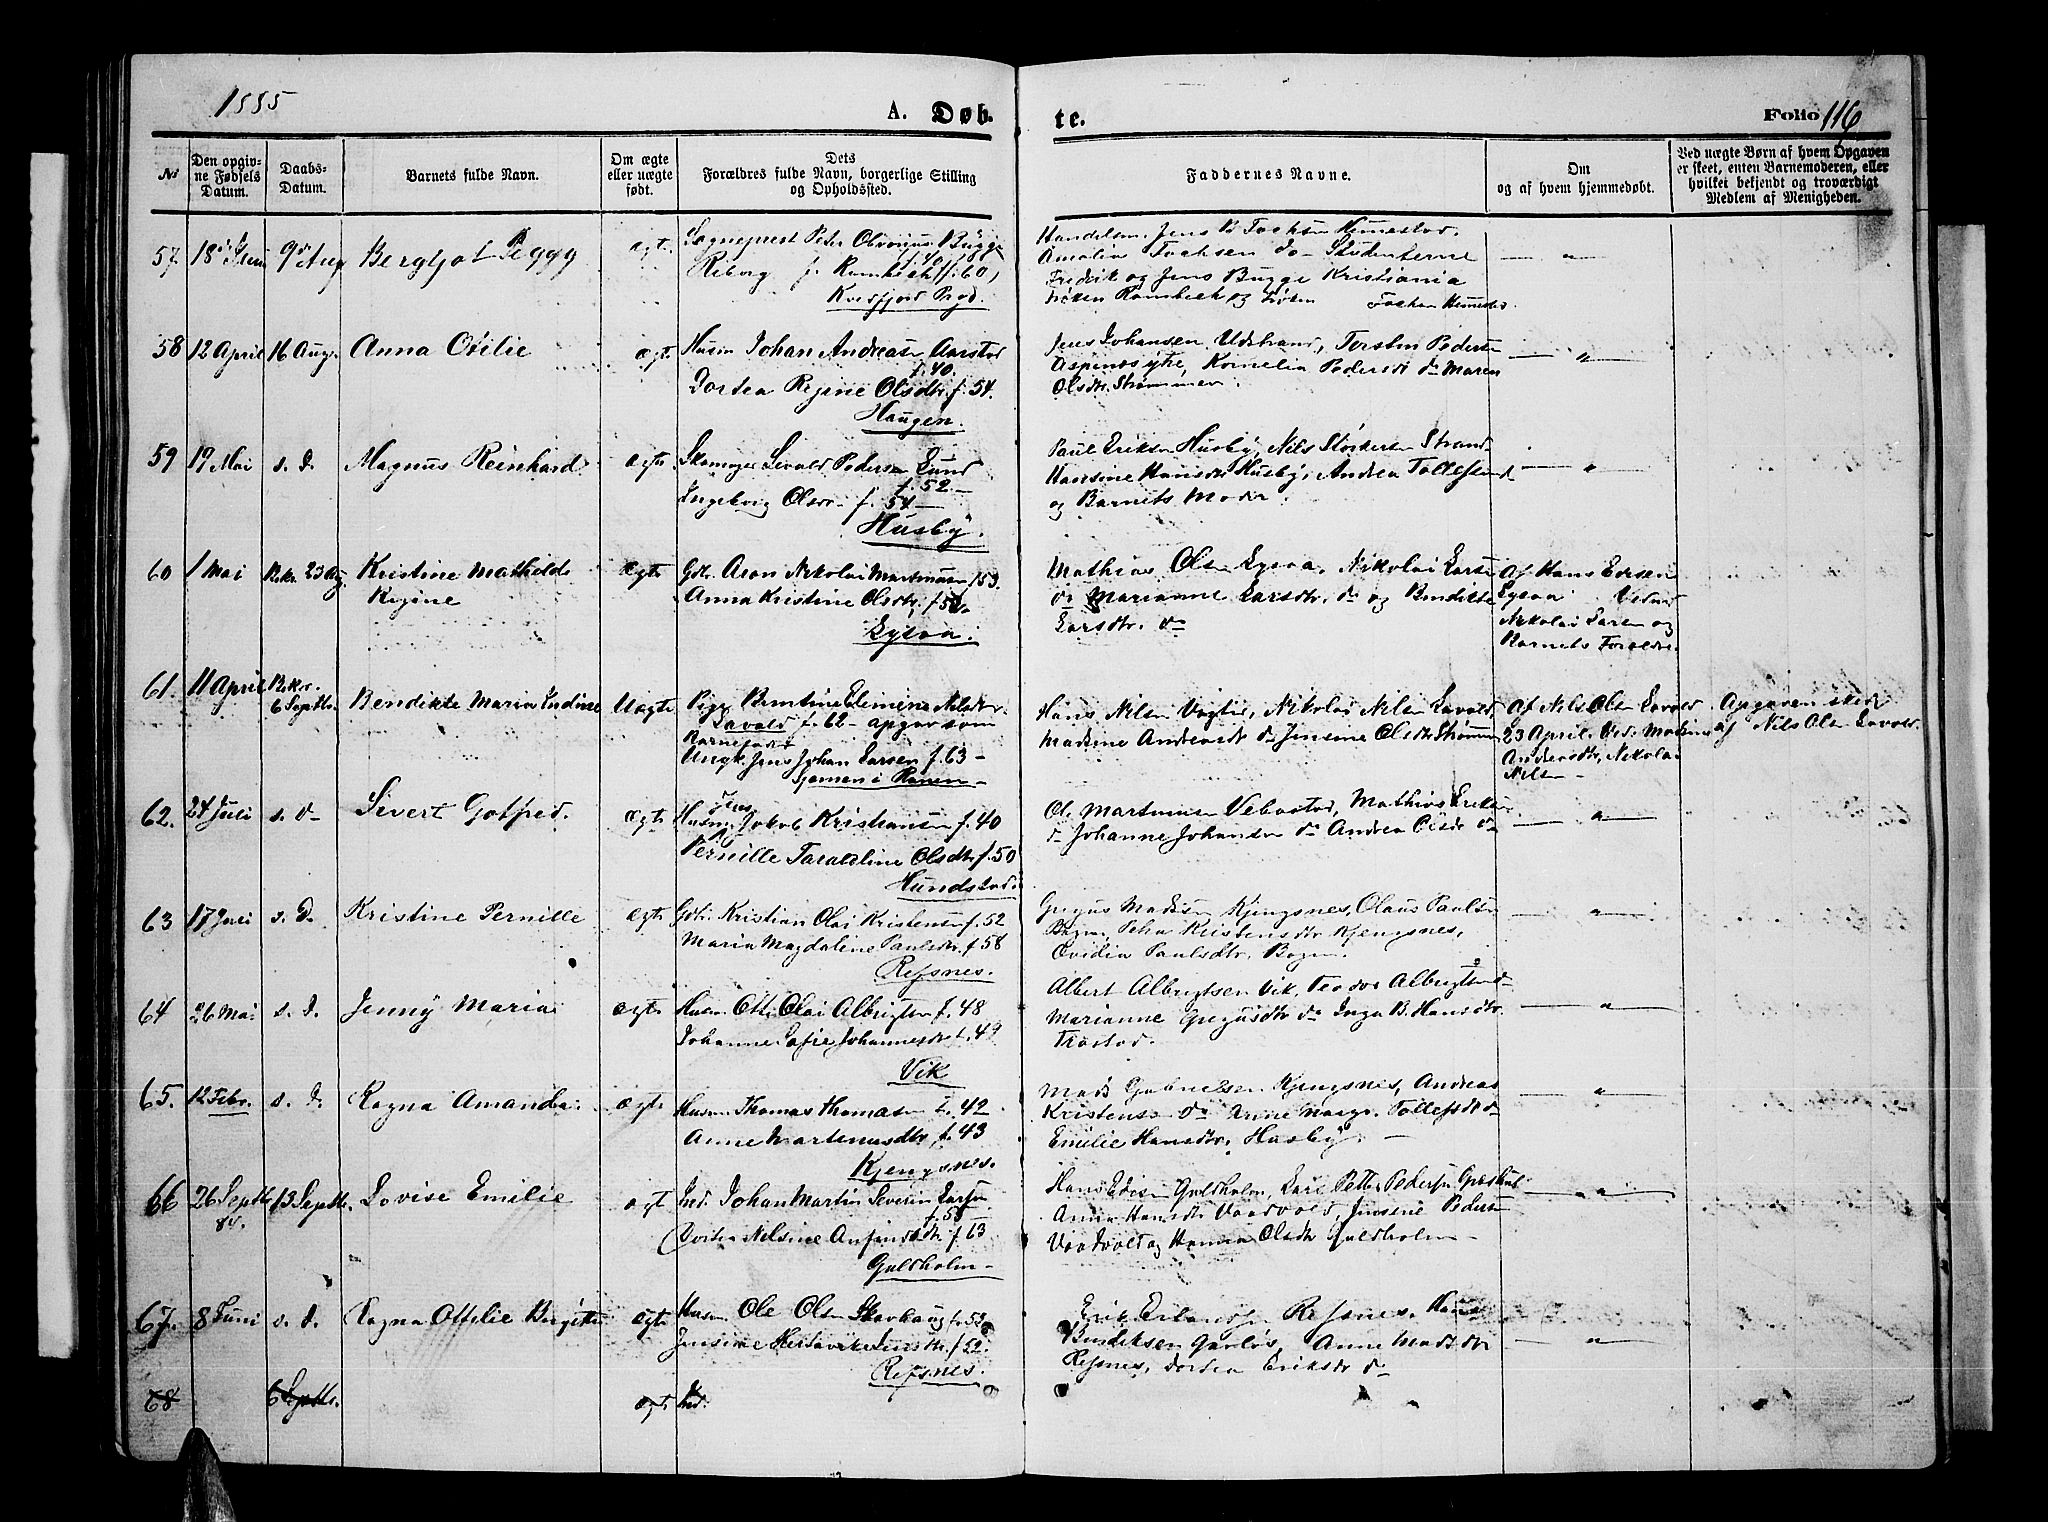 1885
A. Døb-
te.
Folio 116
No
Den opgiv-
ne Fødsels
Datum.
Daabs-
Datum.
Barnets fulde Navn.
Om ægte
eller uægte
født.
Dets
Forældres fulde Navn, borgerlige Stilling
og Opholdssted.
Faddernes Navne.
Om
og af hvem hjemmedøbt.
Ved uægte Børn af hvem Opgaven
er skeet, enten Barnemoderen, eller
hvilket bekjendt og troværdigt
Medlem af Menigheden.
57. 18de Juni 9de Aug Bergljot Peggy ægt. Sognepræst Peter Olivarius Bugge
f. 40
Rambech f. 60,
Kvedfjord Prgd.
Handelsm. Jens
Amalia do Studenterne
Fredrik og Jens Bugge Kristiania
Frøken Rambech og Frøken
58 12 April 16 Aug. Anna Otilie ægt. Husm Johan Andreasen Aarstad
f. 40.
Dortea Regine Olsdtr. f. 54.
Haugen.
Jens Johansen, Torsten Peders
Kornelia Pedersdt do Maren
Olsdtr. Strømmen.
59 19 Mai s. d. Magnus Reinhard ægte Sivald Pedersen Lund
f. 52
Ingeborg Olsdr. f. 54
Husby.
Paul Eriksen Husby, Nils Størkersen Strand
Hansine Hansdtr Husby, Andrea Tollefsen
og Barnets Moder.
60 1 Mai Bekr. 23 Aug. Kristine Mathilde ægte Gdbr. Aron Nikolai Martinusen f 53.
Regine Anna Kristine Olsdtr. f.
Lysaa.
Mathias Olsen Lysaa, Nikolai Larsen
do Marianne Larsdtr. do og Bendikte
Larsdtr. do
Af Hans Edisen
Lysaa Vidner
Nikolai Larsen og
Barnets Forældre.
61. 11 April Bekr.
6 Septbr. Bendikte Maria Indine Uægte Pige Berntine Elemine Nilsdtr.
Lavold f. 62 - opgav som
Barnefader
Ungk. Jens Johan Larsen f. 63 -
i Ranen
Hans Nilsen Nikolai Nilsen Lavold,
Martine Andreasdt do Jensine Olsdtr Strømmen
Af Nils Olsen Lavold
23 April. Vid. Martine
Andersdtr, Nikolai
Nilsen
Opgaven skede
af Nils Olsen Lavold.
62. 24 Juli s. d Sivert Gotfred. ægte Husm Jens
Jakob Kristiansen f. 40
Pernille Taraldine Olsdtr f. 50
Hundstad
Ol. Martinusen Vebostad, Mathias Eriksen
do Johanne Johansdtr do Andrea Olsdtr do
63 17 Juli s. d. Kristine Pernille ægte Gdbr. Kristian Olai Kristensen f. 52
Maria Magdaline Paulsdtr. f 58
Refsnes.
Gregus Madsen Kjengsnes, Olaus Pauls
Bogen, Kristensdtr Kjengsnes,
Ovidia Paulsdtr. Bogen.
64 26 Mai s. d. Jenny Maria ægte Husm Ott Olai Albrigtsen f. 48
Johanne Sofie Johannesdtr f. 49
Vik
Albert Albrigtsen Vik, Teodor Albrigtsen do
Marianne Gregusdtr do Inga B. Hansdtr.
65. 12 Febr. s. d. Ragna Amanda ægte Husm Thomas Thomasen f. 42
Anne Martinusdtr f. 43
Kjengsnes.
Mads Gabrielsen Kjengsnes, Andreas
Kristensen do Anne Marg. Tollefsdt do
Emilie Hansdtr. Husby.
66 26 Septbr 13 Septbr. Lovise Emilie ægt Ind. Johan Martin Severin Larsen
84. f. 58
Nilsine Anfindsdtr f. 63
Guldholm
Hans Edisen Guldholm, Peter Pedersen
Anna Hansdtr Jensine Pedersd
Hanna Olsdtr Guldholm
67. 8 Juni s. d. Ragna Ottilie Birgitte ægte Husm Ole Olsen Skavhaug f. 53
Jensine f. 52.
Refsnes.
Erik Refsnes. Hans
Bendiksen Anne Madsdtr
Refsnes, Dortea Eriksdtr do
68 6 Septbr. ægt Ind.